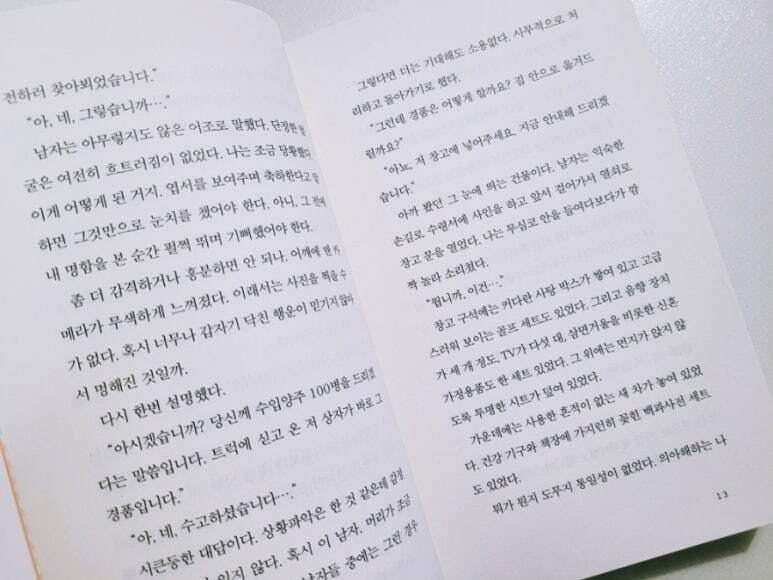 전하러 찾아뵈었습니다."
"아, 네, 그렇습니까…."
남자는 아무렇지도 않은 어조로 말했다. 단정한 얼
굴은 여전히 흐트러짐이 없었다. 나는 조금 당황했다.
이게 어떻게 된 거지. 엽서를 보여주며 축하한다고 말
하면 그것만으로 눈치를 챘어야 한다. 아니, 그 전에
내 명함을 본 순간 펄쩍 뛰며 기뻐했어야 한다.
좀 더 감격하거나 흥분하면 안 되나. 어깨에 멘 카
메라가 무색하게 느껴졌다. 이래서는 사진을 찍을 수
가 없다. 혹시 너무나 갑자기 닥친 행운이 믿기지 않아
서 멍해진 것일까.
다시 한번 설명했다.
"아시겠습니까? 당신께 수입양주 100병을 드리겠
다는 말씀입니다. 트럭에 싣고 온 저 상자가 바로 그
경품입니다."
"아, 네, 수고하셨습니다…."
시큰둥한 대답이다. 상황파악은 한 것 같은데 감정
있지 않다. 혹시 이 남자, 머리가 조금
남자들 중에는 그런 경우
그렇다면 더는 기대해도 소용없다. 사무적으로 처
리하고 돌아가기로 했다.
"그런데 경품은 어떻게 할까요? 집 안으로 옮겨드
릴까요?"
"아뇨, 저 창고에 넣어주세요. 지금 안내해 드리겠
습니다."
아까 봤던 그 눈에 띄는 건물이다. 남자는 익숙한
손길로 수령서에 사인을 하고 앞서 걸어가서 열쇠로
창고 문을 열었다. 나는 무심코 안을 들여다보다가 깜
짝 놀라 소리쳤다.
"뭡니까, 이건…."
창고 구석에는 커다란 사탕 박스가 쌓여 있고 고급
스러워 보이는 골프 세트도 있었다. 그리고 음향 장치
가 세 개 정도, TV가 다섯 대, 삼면거울을 비롯한 신혼
가정용품도 한 세트 있었다. 그 위에는 먼지가 앉지 않
도록 투명한 시트가 덮여 있었다.
가운데에는 사용한 흔적이 없는 새 차가 놓여 있었
다. 건강 기구와 책장에 가지런히 꽂힌 백과사전 세트
도 있었다.
뭐가 뭔지 도무지 통일성이 없었다. 의아해하는 나
13